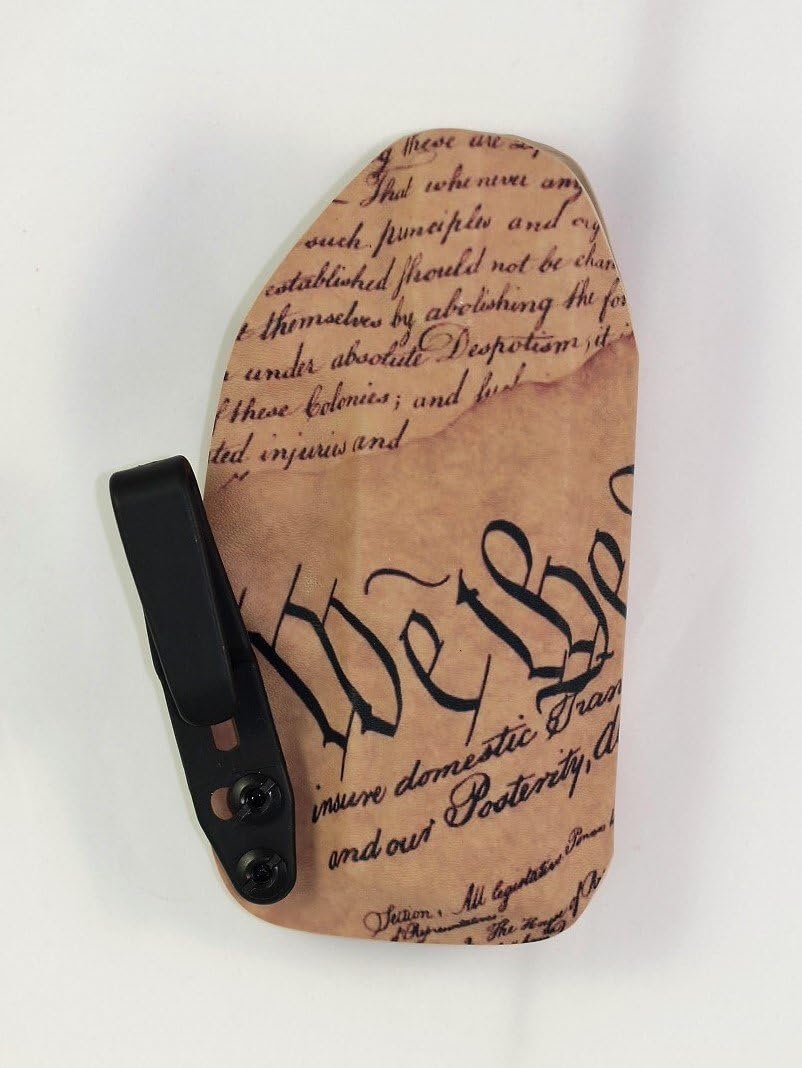 g these are
That whenever any
such principles and
established should not be chan
themselves by abolishing the for
under absolute Despotism, it
these Colonies; and
ted injuries and
We the Peo
insure domestic Tran
and our Posterity,
Section. All legislative Powers
The House of R